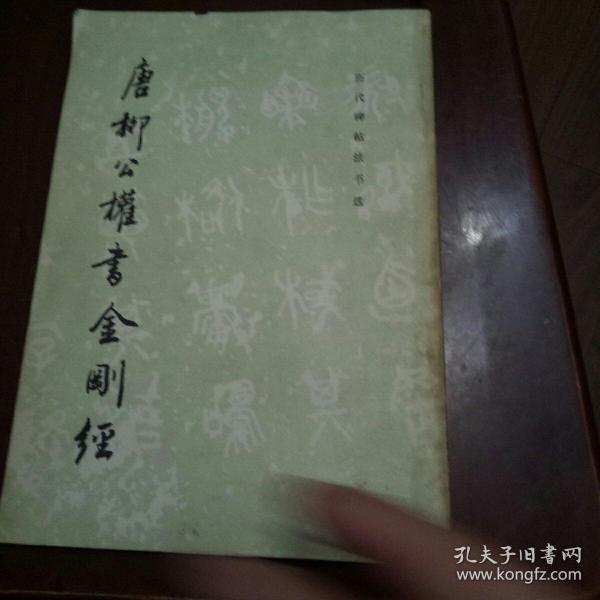 历代碑帖法书选
唐柳公權書金剛經
孔夫子旧書网
www.kongfz.com